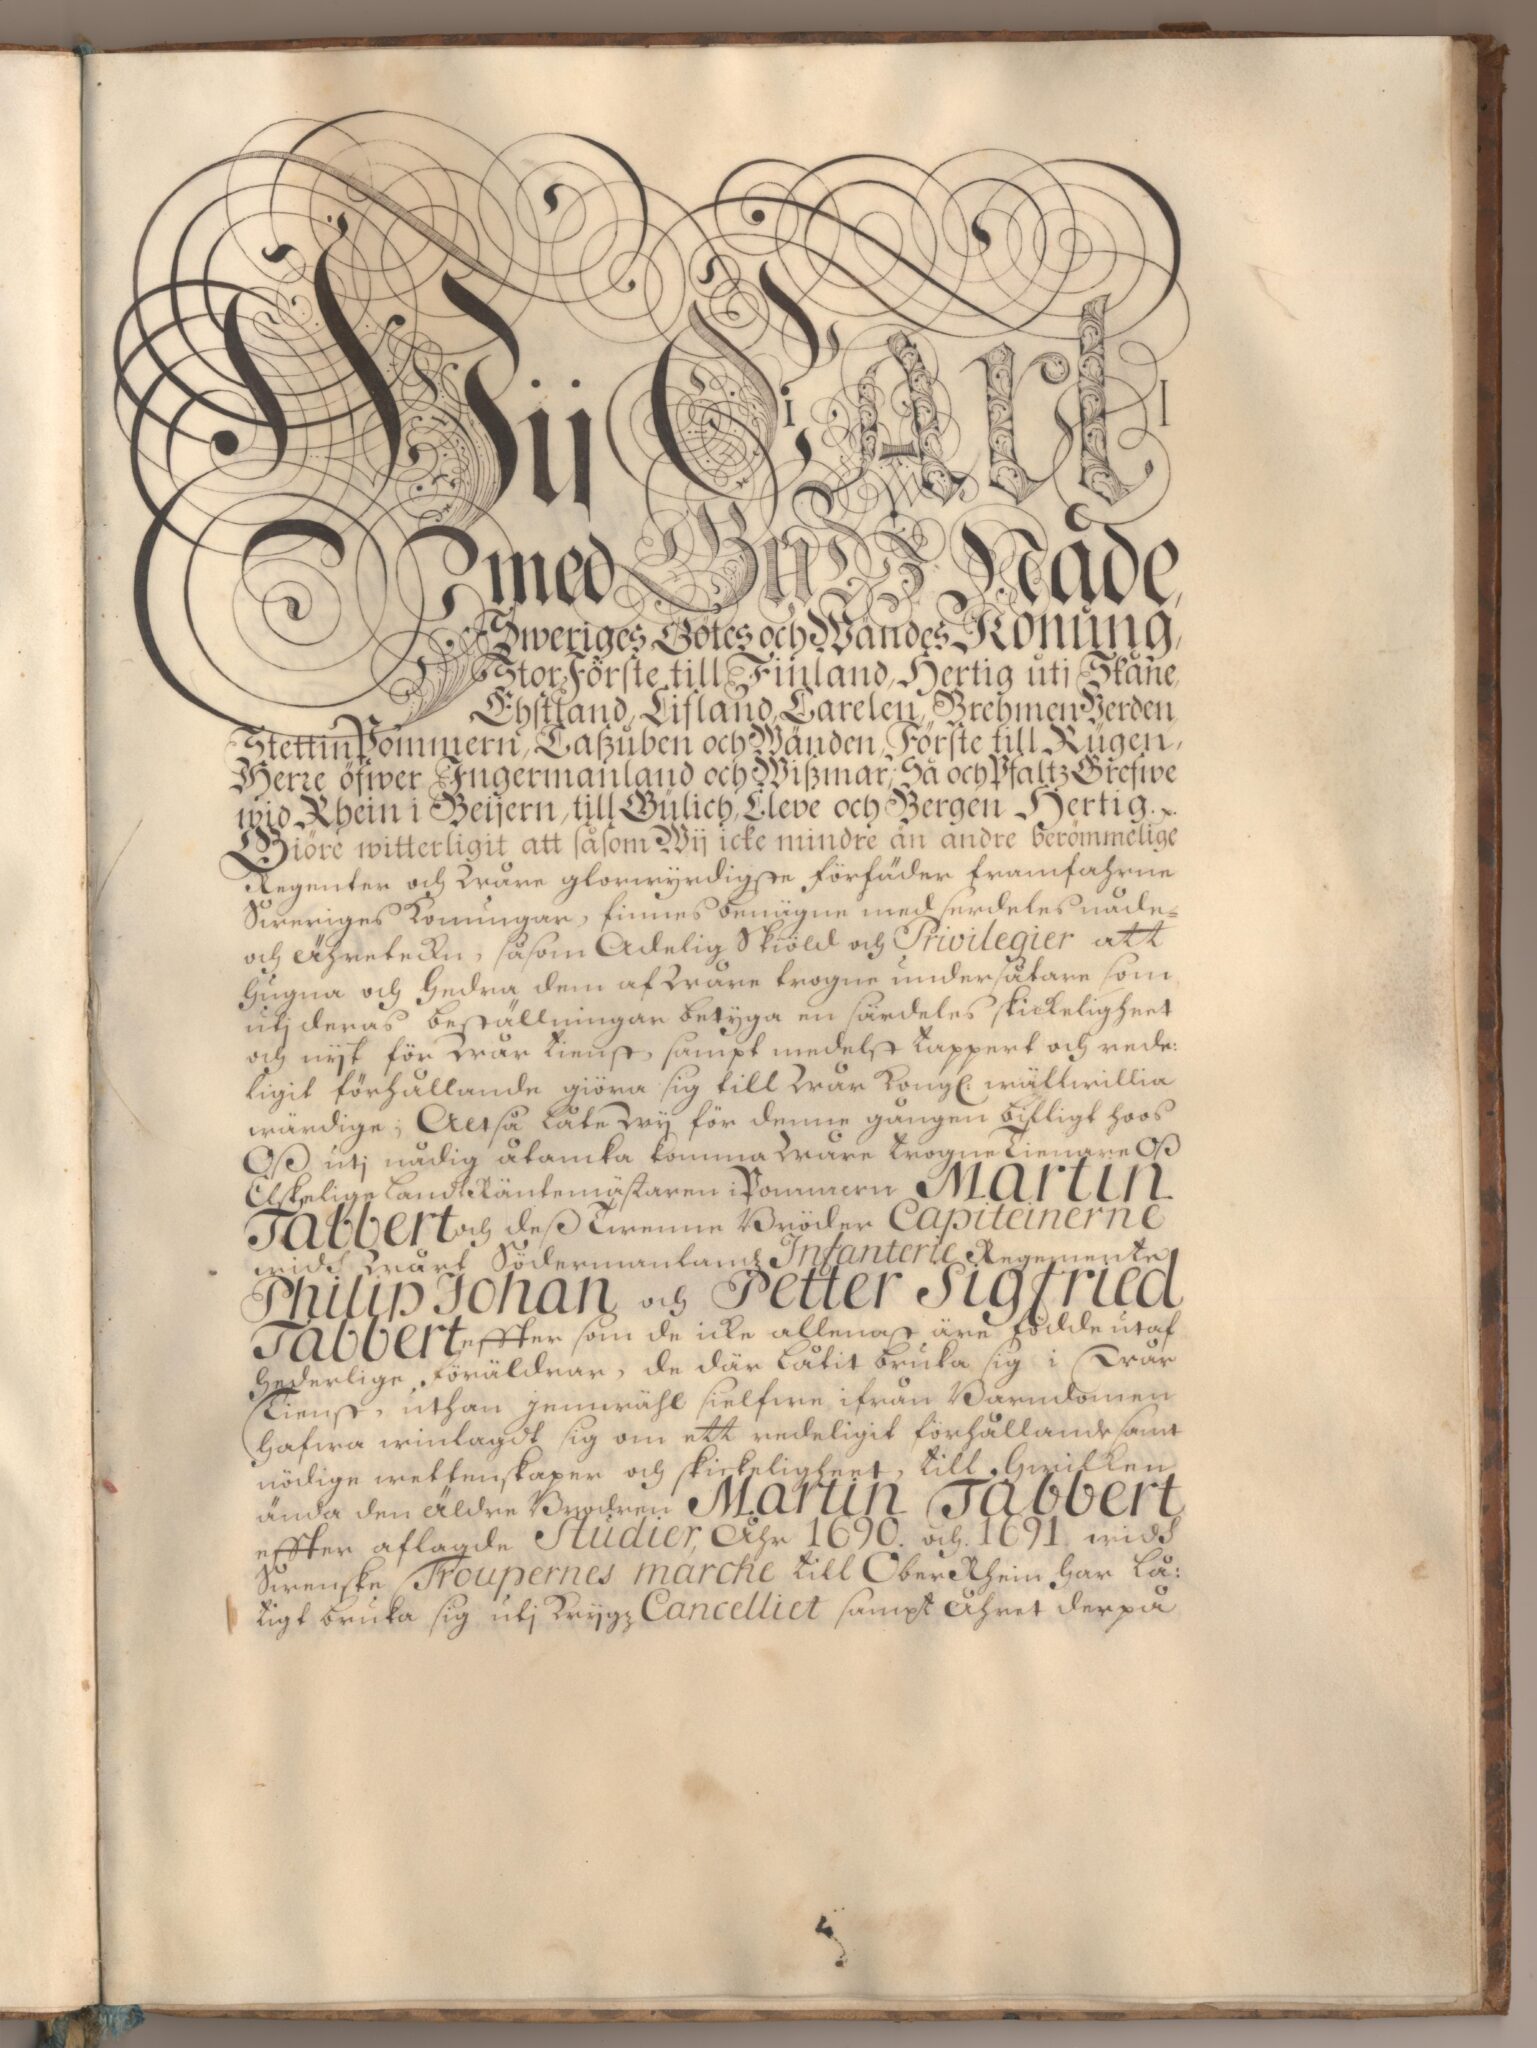 Wij Carl
med Gudz Nåde,
Sweriges Götes och Wändes Konung,
Stor Förste till Finland, Hertig utj Skåne,
Ehstland, Lifland, Carelen, Brehmen Verden
Stettin Pommern, Caßuben och Wänden, Förste till Rügen,
Herre öfwer Ingermanland och Wißmar, Så och Pfaltz Grefwe
wid Rhein i Beijern, till Gülich, Cleve och Bergen Hertig.
Giöre witterligit att såsom Wij icke mindre än andre berömmelige
Regenter och Wåre glorwyrdigste förfäder framfahrne
Sweriges Konungar, finnes benägne med serdeles nåde-
och Ähretekn, såsom Adelig Skiöld och Privilegier att
hugna och hedra dem af Wåre trogne undersåtare som
utj deras beställningar betyga en särdeles skickeligheet
och nijt för Wår tienst, sampt medelst tappert och rede:
ligit förhållande giöra sig till Wår Kongl. wällwillia
wärdige; Altså låte Wij för denne gången billigt hoos
Oß utj nådig åtancka komma Wåre trogne Tienare Oß
Elskelige Landt Räntemästaren i Pommern Martin
Tabbert och deß Twenne Bröder Capiteinerne
widh Wårt Södermanlandz Infanterie Regemente
Philip Johan och Petter Sigfried
Tabbert effter som de icke allenast äre födde utaf
hederlige föräldrar, de där låtit bruka sig i Wår
Tienst, uthan jemwähl sielfwe ifrån Barndomen
hafwa winlagdt sig om ett redeligit förhållande samt
nödige wettenskaper och skickeligheet, till hwilken
ända den äldre Brodren Martin Tabbert
effter aflagde Studier, Åhr 1690. och 1691. widh
Swenske Troupernes marche till Ober Rhein har lå:
tigt bruka sig utj Krijgz Cancelliet sampt åhret derpå
4